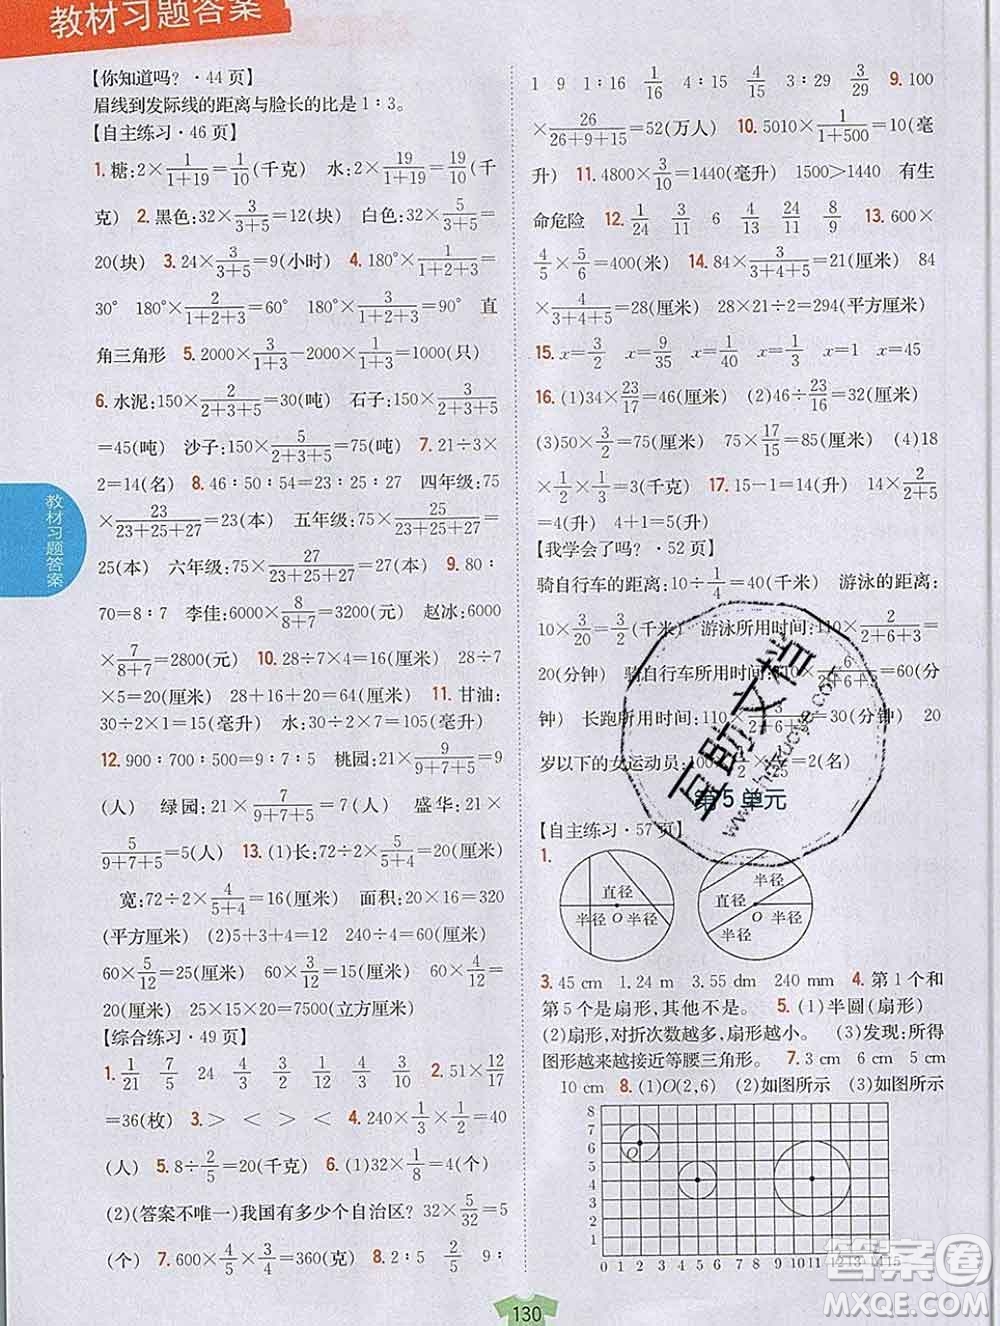 教材习题答案
【你知道吗？·44页】
眉线到发际线的距离与脸长的比是1∶3。
【自主练习·46页】
1.糖:2×1/(1+19)=1/10(千克) 水:2×19/(1+19)=19/10(千
克) 2.黑色:32×3/(3+5)=12(块) 白色:32×5/(3+5)=
20(块) 3.24×3/(3+5)=9(小时) 4.180°×1/(1+2+3)=
30° 180°×2/(1+2+3)=60° 180°×3/(1+2+3)=90° 直
角三角形 5.2000×3/(1+3)-2000×1/(1+3)=1000(只)
6.水泥:150×2/(2+3+5)=30(吨) 石子:150×3/(2+3+5)
=45(吨) 沙子:150×5/(2+3+5)=75(吨) 7.21÷3×
2=14(名) 8.46∶50∶54=23∶25∶27 四年级:75
×23/(23+25+27)=23(本) 五年级:75×25/(23+25+27)=
25(本) 六年级:75×27/(23+25+27)=27(本) 9.80∶
70=8∶7 李佳:6000×8/(8+7)=3200(元) 赵冰:6000
×7/(8+7)=2800(元) 10.28÷7×4=16(厘米) 28÷7
×5=20(厘米) 28+16+20=64(厘米) 11.甘油:
30÷2×1=15(毫升) 水:30÷2×7=105(毫升)
12.900∶700∶500=9∶7∶5 桃园:21×9/(9+7+5)=9
(人) 绿园:21×7/(9+7+5)=7(人) 盛华:21×
5/(9+7+5)=5(人) 13.(1)长:72÷2×5/(5+4)=20(厘米)
宽:72÷2×4/(5+4)=16(厘米) 面积:20×16=320
(平方厘米) (2)5+3+4=12 240÷4=60(厘米)
60×5/12=25(厘米) 60×3/12=15(厘米) 60×4/12=
20(厘米) 25×15×20=7500(立方厘米)
【综合练习·49页】
1.1/21 7/5 24 4/3 2/3 3/4 4/3 2/3 2.51×12/17
=36(枚) 3.> < > < 4.240×1/3×1/2=40
(人) 5.8÷2/5=20(千克) 6.(1)32×1/8=4(个)
(2)(答案不唯一)我国有多少个自治区? 32×5/32=5
(个) 7.600×4/5×3/4=360(克) 8.2∶5 2/5 9∶
1 9 1∶16 1/16 4∶15 4/15 3∶29 3/29 9.100
×26/(26+9+15)=52(万人) 10.5010×1/(1+500)=10(毫
升) 11.4800×3/10=1440(毫升) 1500>1440 有生
命危险 12.1/24 3/11 6 4/13 24/11 8/9 13.600×
4/5×5/6=400(米) 14.84×3/(3+4+5)=21(厘米) 84
×4/(3+4+5)=28(厘米) 28×21÷2=294(平方厘米)
15.x=3/2 x=9/35 x=1/40 x=1/3 x=1 x=45
16.(1)34×23/17=46(厘米) (2)46÷23/16=32(厘米)
(3)50×3/2=75(厘米) 75×17/15=85(厘米) (4)18
×1/2×1/3=3(千克) 17.15-1=14(升) 14×2/(5+2)
=4(升) 4+1=5(升)
【我学会了吗？·52页】
骑自行车的距离:10÷1/4=40(千米) 游泳的距离:
10×3/20=3/2(千米) 游泳所用时间:110×2/(2+6+3)=
20(分钟) 骑自行车所用时间:110×6/(2+6+3)=60(分
钟) 长跑所用时间:110×3/(2+6+3)=30(分钟) 20
岁以下的女运动员:=2(名)
第5单元
【自主练习·57页】
1.
直径
半径 O 半径
半径
直径
O
半径
3.45 cm 1.24 m 3.55 dm 240 mm 4.第1个和
第5个是扇形,其他不是。 5.(1)半圆(扇形)
(2)扇形,对折次数越多,扇形越小。 (3)发现:所得
图形越来越接近等腰三角形。 7.3cm 6 cm 5 cm
10 cm 8.(1)O(2,6) (2)如图所示 (3)如图所示
8
7
6
5
4
3
2
1
O
0 1 2 3 4 5 6 7 8 9 10 11 12 13 14 15
教材习题答案
130
互助文档
答案圈
MXQE.COM